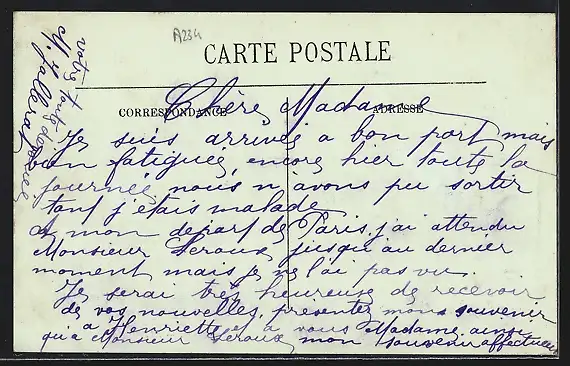 A234
CARTE POSTALE
CORRESPONDANCE
ADRESSE
Chère Madame
Je suis arrivée a bon port mais
bien fatiguée, encore hier toute la
journée nous n'avons pu sortir
tant j'étais malade
A mon depart de Paris j'ai attendu
Monsieur Leroux jusqu'au dernier
moment mais je ne l'ai pas vu.
Je serai très heureuse de recevoir
de vos nouvelles, présentez mon souvenir
a Henriette et a vous Madame ainsi
qu'a Monsieur Leroux mon souvenir affectueux
votre toute